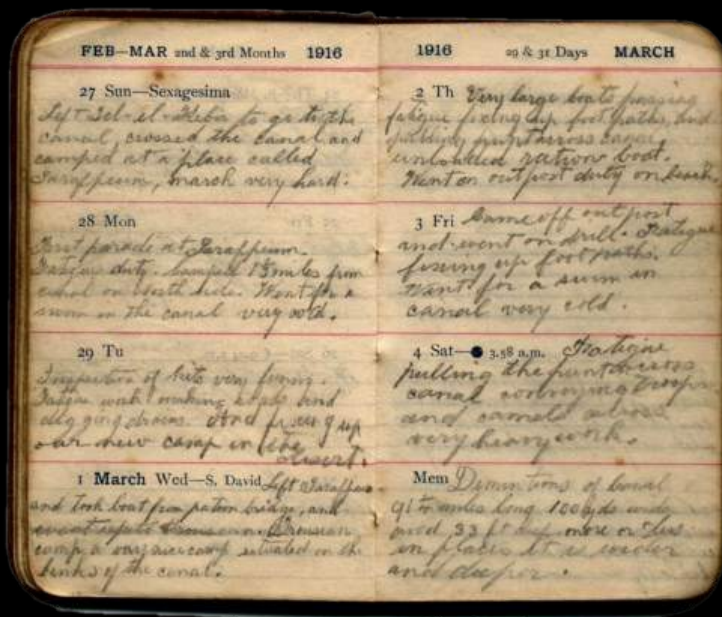 FEB—MAR 2nd & 3rd Months 1916
27 Sun—Sexagesima
Left Tel-el-Kebir to go to the
canal, crossed the canal and
camped at a place called
Serappeum, march very hard.
28 Mon
First parade at Serappeum.
Fatigue duty. Camped 1½ miles from
canal on North side. Went for a
swim in the canal very cold.
29 Tu
Inspection of kits very funny.
Fatigue work making roads and
digging drains. And fixing up
our new camp in the
desert.
1 March Wed—S. David Left Serappeum
and took boat from pontoon bridge, and
camp a very nice camp situated on the
banks of the canal.
1916 29 & 31 Days MARCH
2 Th Very large boats passing
fatigue fixing up foot paths, and
pulling punt across canal
unloaded rations boat.
Went on outpost duty on beach.
3 Fri Came off outpost
and went on drill. Fatigue
fixing up foot paths.
Went for a swim in
canal very cold.
4 Sat—● 3.58 a.m. Fatigue
pulling the punt across
canal conveying troops
and camels across
very heavy work.
Mem Dimentions of Canal
miles long 100 yds wide
33 ft deep more or less
in places it is wider
and deeper.